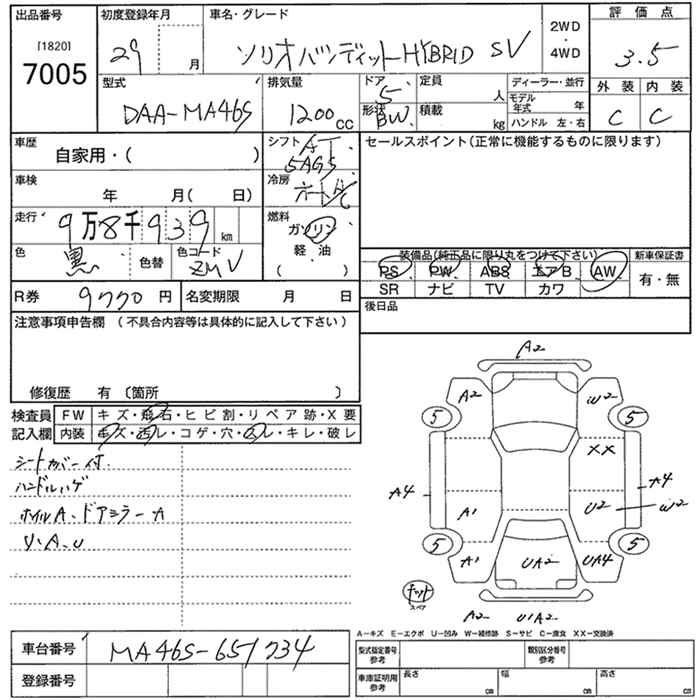 出品番号
[1820]
7005
初度登録年月
29 月
車名・グレード
ソリオバンディットHYBRID SV
2WD
4WD
評価点
3.5
外装 内装
C C
型式
DAA-MA46S
排気量
1200 cc
ドア
5
形状
BW.
定員
人
積載
kg
ディーラー・並行
モデル年式 年
ハンドル 左・右
車歴
自家用・( )
シフト
AT
5AGS
車検
年 月( 日)
冷房
オートA/C
走行
9万8千939 km
燃料
ガソリン
軽 油
( )
色
黒
色替
色コード
ZMV
セールスポイント(正常に機能するものに限ります)
装備品(純正品に限り丸をつけて下さい)
PS PW ABS エアB AW
SR ナビ TV カワ
新車保証書
有・無
R券 9770 円
名変期限 月 日
後日品
注意事項申告欄 (不具合内容等は具体的に記入して下さい)
修復歴 有 (箇所 )
検査員
記入欄
FW キズ・飛石・ヒビ割・リペア跡・X要
内装 キズ・汚レ・コゲ・穴・凹レ・キレ・破レ
シートカバー付
ハンドルハゲ
ホイルA、ドアミラーA
リ、A、U
A2
A2 W2
5 5
XX
A4 A4
A1 U2 W2
5 5
A1 UA2 UA4
キット
スペア
A2 U1A2
A-キズ E-エクボ U-凹み W-補修跡 S-サビ C-腐食 XX-交換済
車台番号 MA46S-651734
登録番号
型式指定番号
参考
類別区分番号
参考
車庫証明用
参考
長さ cm
幅 cm
高さ cm